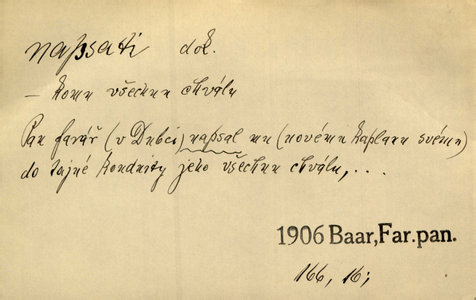 napsati dok.
– komu všechnu chválu
Pan farář (v Dubci) napsal mu (novému kaplanu svému)
do tajné konduity jeho všechnu chválu, . . .
1906 Baar, Far. pan.
166, 16;